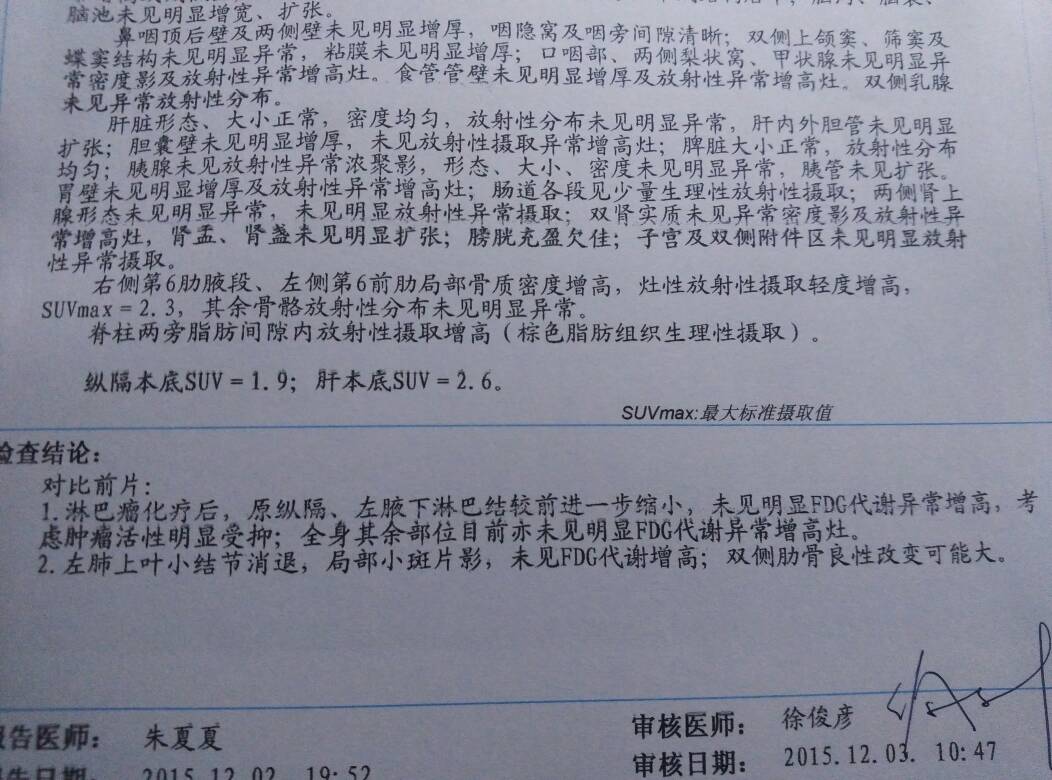 脑池未见明显增宽、扩张。
鼻咽顶后壁及两侧壁未见明显增厚，咽隐窝及咽旁间隙清晰；双侧上颌窦、筛窦及
蝶窦结构未见明显异常，粘膜未见明显增厚；口咽部、两侧梨状窝、甲状腺未见明显异
常密度影及放射性异常增高灶。食管管壁未见明显增厚及放射性异常增高灶。双侧乳腺
未见异常放射性分布。
肝脏形态、大小正常，密度均匀，放射性分布未见明显异常，肝内外胆管未见明显
扩张；胆囊壁未见明显增厚，未见放射性摄取异常增高灶；脾脏大小正常，放射性分布
均匀；胰腺未见放射性异常浓聚影，形态、大小、密度未见明显异常，胰管未见扩张。
胃壁未见明显增厚及放射性异常增高灶；肠道各段见少量生理性放射性摄取；两侧肾上
腺形态未见明显异常，未见明显放射性异常摄取；双肾实质未见异常密度影及放射性异
常增高灶，肾盂、肾盏未见明显扩张；膀胱充盈欠佳；子宫及双侧附件区未见明显放射
性异常摄取。
右侧第6肋腋段、左侧第6前肋局部骨质密度增高，灶性放射性摄取轻度增高，
SUVmax=2.3，其余骨骼放射性分布未见明显异常。
脊柱两旁脂肪间隙内放射性摄取增高（棕色脂肪组织生理性摄取）。
纵隔本底SUV=1.9；肝本底SUV=2.6。
SUVmax:最大标准摄取值
检查结论：
对比前片：
1.淋巴瘤化疗后，原纵隔、左腋下淋巴结较前进一步缩小，未见明显FDG代谢异常增高，考
虑肿瘤活性明显受抑；全身其余部位目前亦未见明显FDG代谢异常增高灶。
2.左肺上叶小结节消退，局部小斑片影，未见FDG代谢增高；双侧肋骨良性改变可能大。
报告医师： 朱夏夏
审核医师： 徐俊彦
报告日期： 2015.12.02 19:52
审核日期： 2015.12.03. 10:47